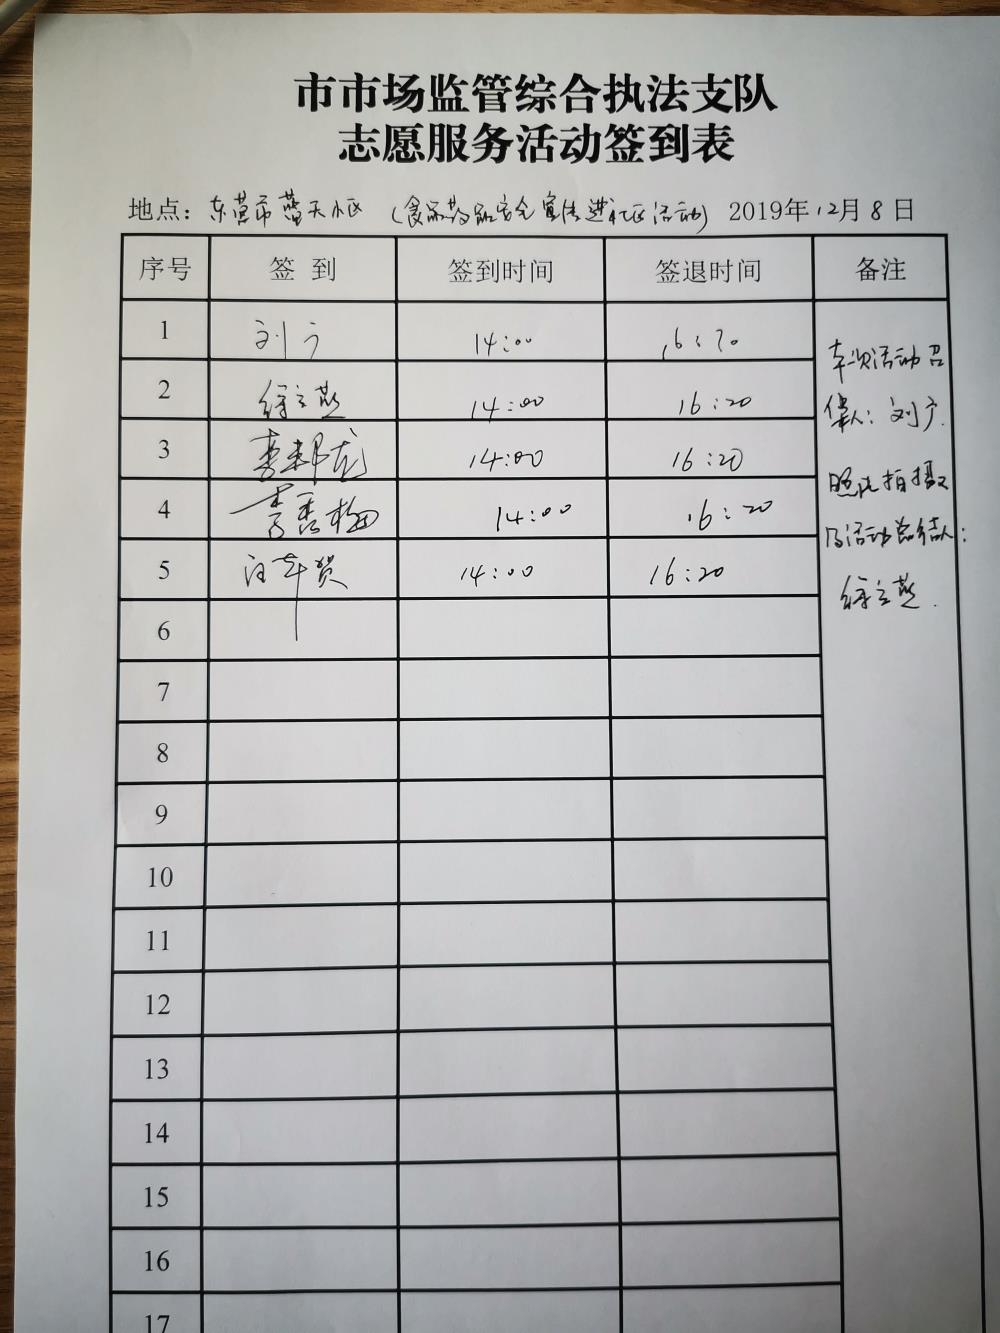 市市场监管综合执法支队
志愿服务活动签到表
地点：东营市蓝天小区 (食品药品安全宣传进社区活动) 2019年12月8日
序号 签到 签到时间 签退时间 备注
1 刘广 14:00 16:20
2 徐立燕 14:00 16:20
3 李邦龙 14:00 16:20
4 李秀梅 14:00 16:20
5 汪年贺 14:00 16:20
6
7
8
9
10
11
12
13
14
15
16
17
本次活动召
集人：刘广.
照片拍摄
及活动总结人：
徐立燕.